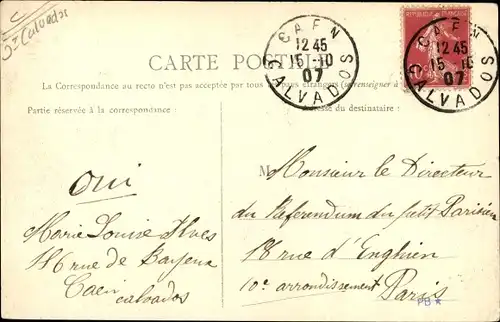 Jn Calvados
CARTE POSTALE
CAEN
12 45
15-10
07
CALVADOS
REPUBLIQUE FRANÇAISE
10c
CAEN
12 45
15-10
07
CALVADOS
La Correspondance au recto n'est pas acceptée par tous les pays étrangers (se renseigner à
Partie réservée à la correspondance:
Adresse du destinataire:
oui
Marie Louise
116 rue de Bayeux
Caen
calvados
M Monsieur le Directeur
du Referendum du Petit Parisien
18 rue d'Enghien
10e arrondissement
Paris
PB